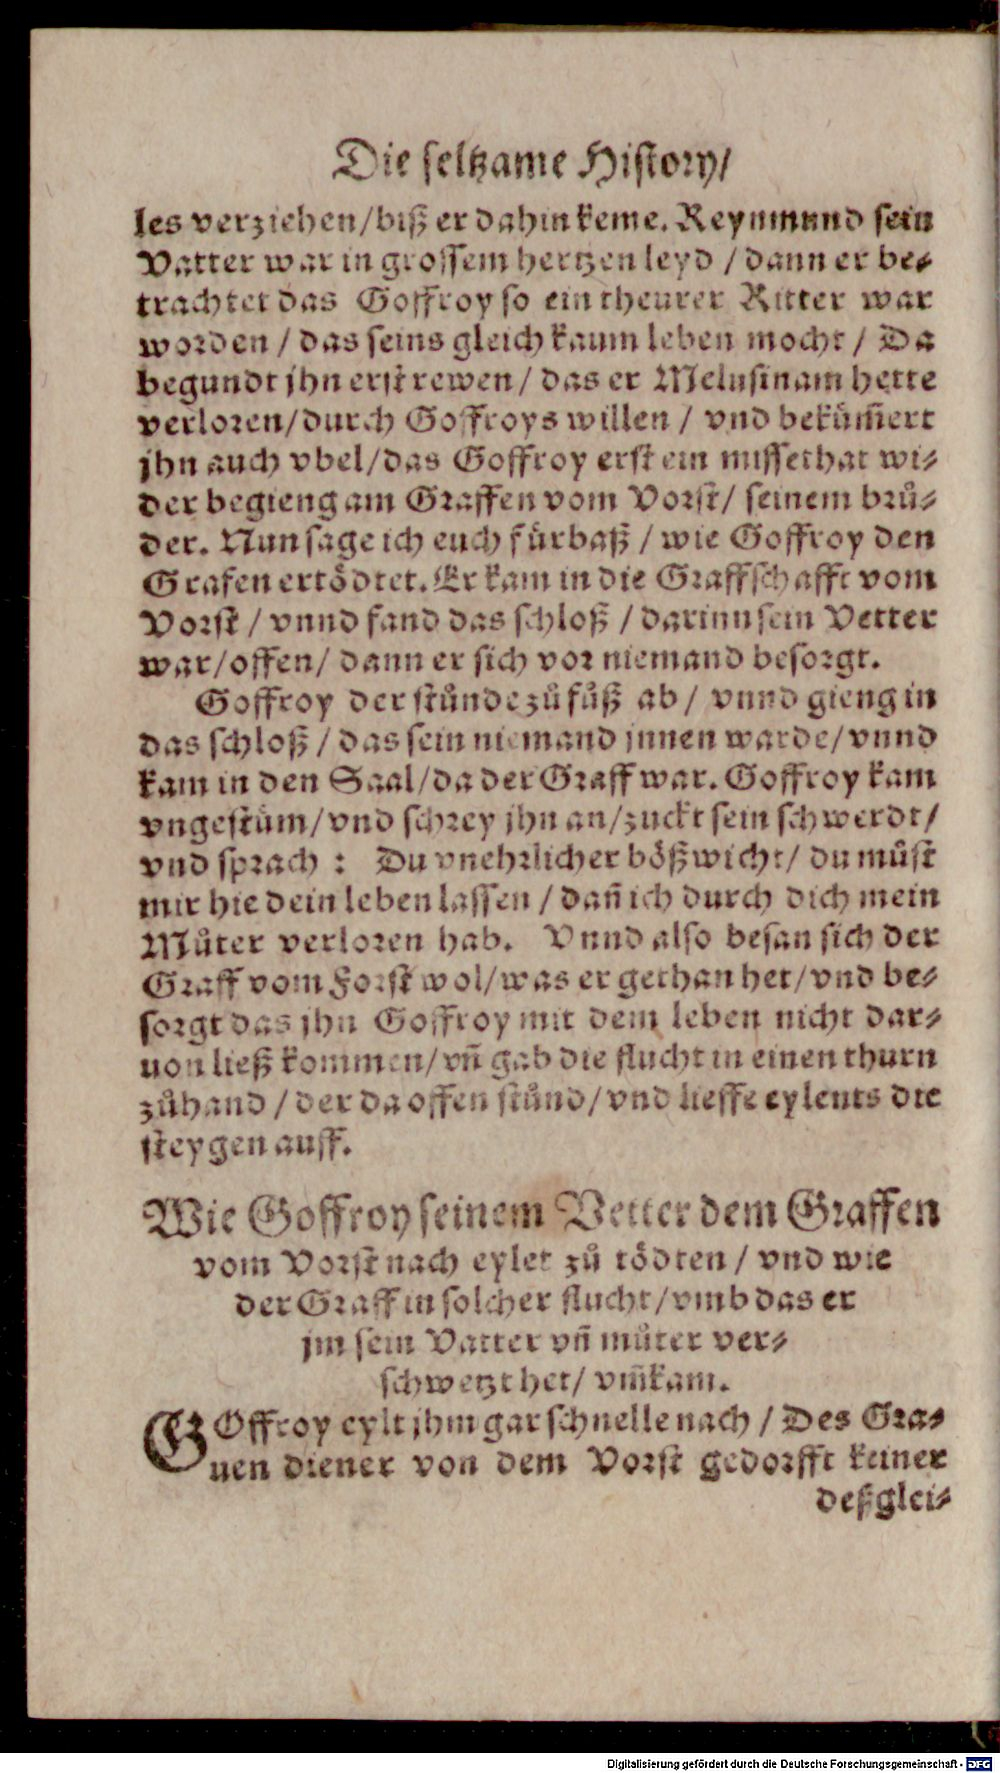 Die seltzame History/
les verziehen/biß er dahin keme. Reynmund sein
Vatter war in grossem hertzen leyd / dann er be-
trachtet das Goffroy so ein theurer Ritter war
worden / das seins gleich kaum leben mocht / Da
begundt jhn erst rewen / das er Melusinam hette
verloren/durch Goffroys willen / vnd bekům̃ert
jhn auch vbel/das Goffroy erst ein missethat wi-
der begieng am Graffen vom Vorst/ seinem brů-
der. Nun sage ich euch fürbaß / wie Goffroy den
Grafen ertödtet. Er kam in die Graffschafft vom
Vorst / vnnd fand das schloß / darinn sein Vetter
war/offen/ dann er sich vor niemand besorgt.
Goffroy der stůnde zů fůß ab / vnnd gieng in
das schloß / das sein niemand jnnen warde/vnnd
kam in den Saal/da der Graff war. Goffroy kam
vngestüm/vnd schrey jhn an/zuckt sein schwerdt/
vnd sprach : Du vnehrlicher bößwicht/ du můst
mir hie dein leben lassen / dañ ich durch dich mein
Můter verloren hab. Vnnd also besan sich der
Graff vom Forst wol/was er gethan het/vnd be-
sorgt das jhn Goffroy mit dem leben nicht dar-
uon ließ kommen/vñ gab die flucht in einen thurn
zůhand / der da offen stůnd/vnd lieffe eylents die
steygen auff.
Wie Goffroy seinem Vetter dem Graffen
vom Vorst nach eylet zů tödten / vnd wie
der Graff in solcher flucht/vmb das er
jm sein Vatter vñ můter ver-
schwetzt het/ vm̃kam.
GOffroy eylt jhm gar schnelle nach / Des Gra-
uen diener von dem Vorst gedorfft keiner
deßglei-
Digitalisierung gefördert durch die Deutsche Forschungsgemeinschaft - DFG